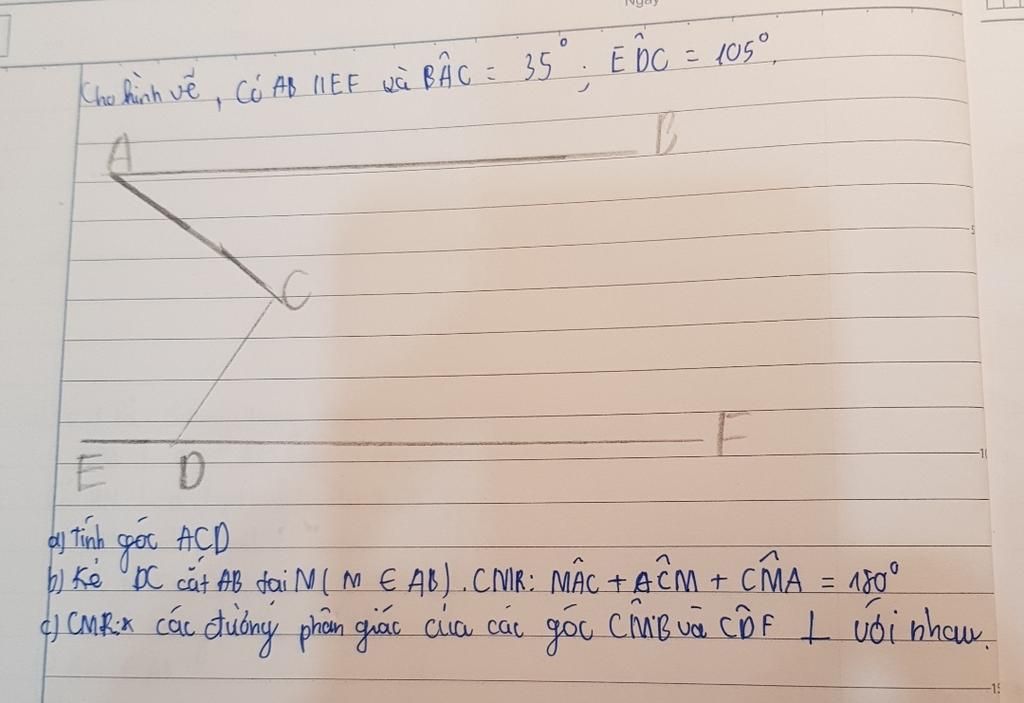 Ngày
Cho hình vẽ, Có AB // EF và BÂC = 35°; ED̂C = 105°.
A
B
C
E
D
F
a) Tính góc ACD
b) Kẻ DC cắt AB tại M (M ∈ AB). CMR: MÂC + AĈM + CM̂A = 180°
c) CMR: các đường phân giác của các góc CM̂B và CD̂F ⊥ với nhau.